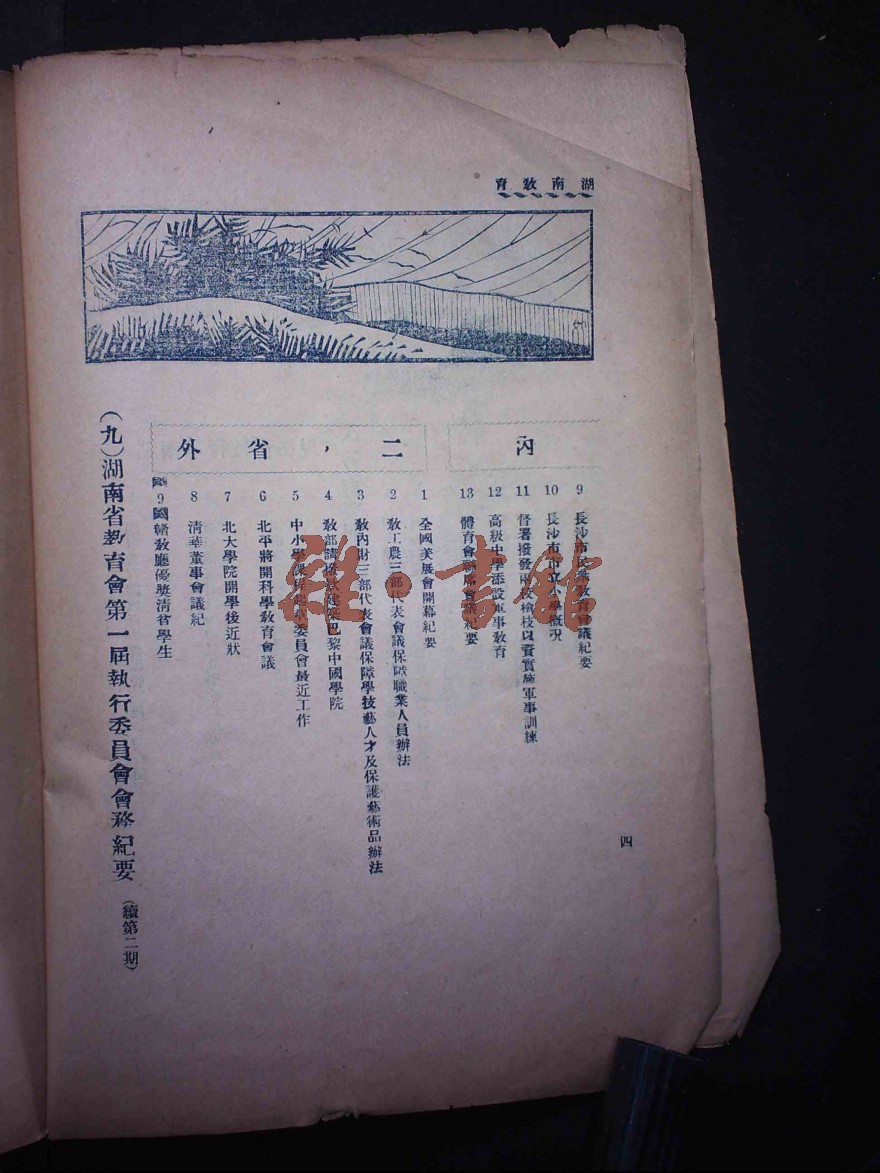 湖南敎育
內
9 長沙市民衆敎育會議紀要
10 長沙市市立小學概況
11 督署撥發兩校槍枝以資實施軍事訓練
12 高級中學添設軍事敎育
13 體育會聯席會議紀要
二，省外
1 全國美展會開幕紀要
2 敎工農三部代表會議保障職業人員辦法
3 敎內財三部代表會議保障學技藝人才及保護藝術品辦法
4 敎部請撥款建築巴黎中國學院
5 中小學課程起草委員會最近工作
6 北平將開科學敎育會議
7 北大學院開學後近狀
8 清華董事會議紀
9 敎廳優獎清貧學生
（九）湖南省敎育會第一屆執行委員會會務紀要（續第二期）
四
雜·書館